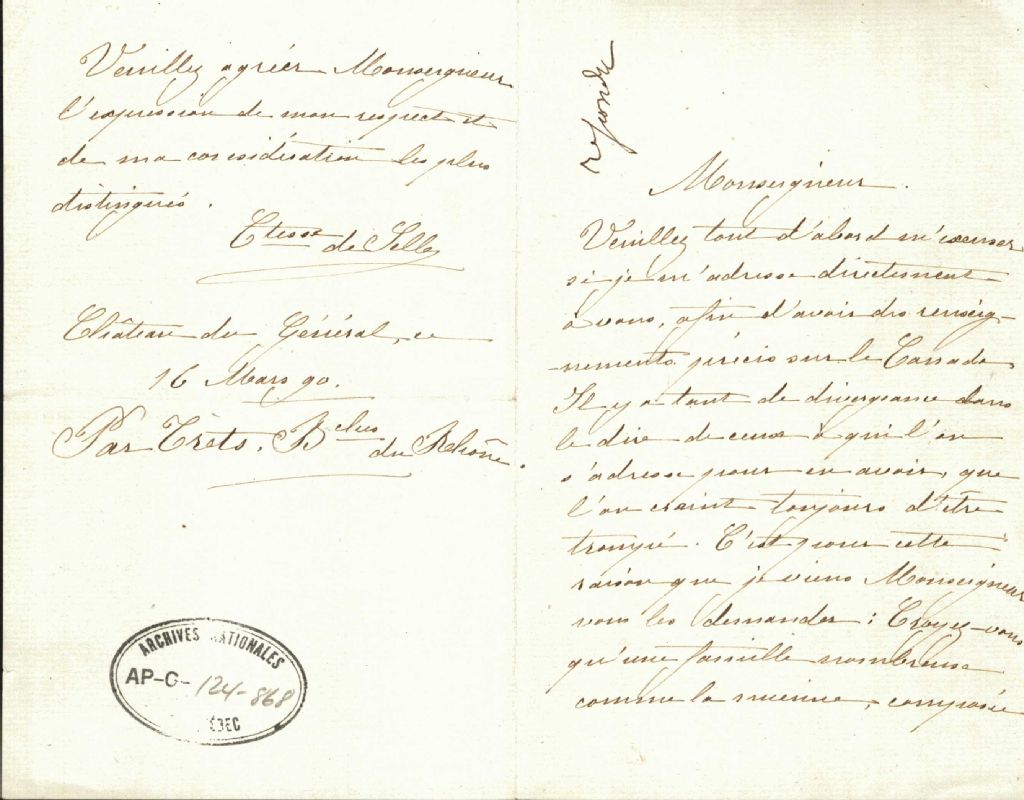 répondu
Monseigneur.
Veuillez tout d'abord m'excuser
si je m'adresse directement
à vous, afin d'avoir des renseig-
-nements précis sur le Canada.
Il y a tant de divergeance dans
le dire de ceux à qui l'on
s'adresse pour en avoir, que
l'on craint toujours d'être
trompé. C'est pour cette
raison que je viens Monseigneur
vous les demander : Croyez-vous
qu'une famille nombreuse
comme la mienne, composée
Veuillez agréer Monseigneur
l'expression de mon respect et
de ma considération les plus
distingués.
Ctesse de Selle
Château du Général, ce
16 Mars 90.
Par Trets. Bches du Rhône.
ARCHIVES NATIONALES
AP-G-124-868